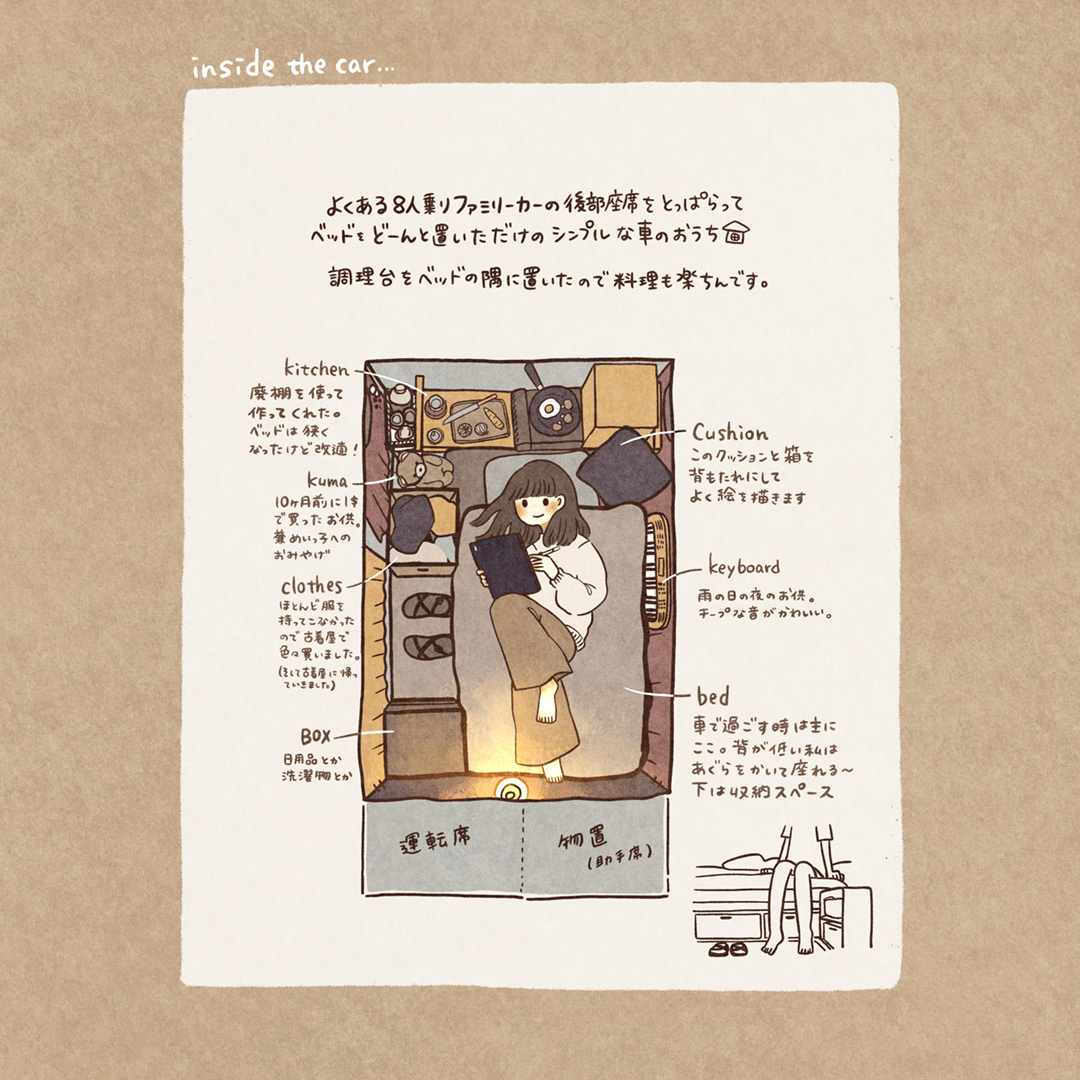 inside the car...
よくある8人乗りファミリーカーの後部座席をとっぱらって
ベッドをどーんと置いただけのシンプルな車のおうち
調理台をベッドの隅に置いたので料理も楽ちんです。
kitchen
廃棚を使って
作ってくれた。
ベッドは狭く
なったけど改適!
kuma
10ヶ月前に1$
で買ったお供。
兼めいっ子への
おみやげ
clothes
ほとんど服を
持ってこなかった
ので古着屋で
色々買いました。
(そして古着屋に帰っ
ていきました)
BOX
日用品とか
洗濯物とか
Cushion
このクッションと箱を
背もたれにして
よく絵を描きます
keyboard
雨の日の夜のお供。
チープな音がかわいい。
bed
車で過ごす時は主に
ここ。背が低い私は
あぐらをかいて座れる〜
下は収納スペース
運転席
物置
(助手席)